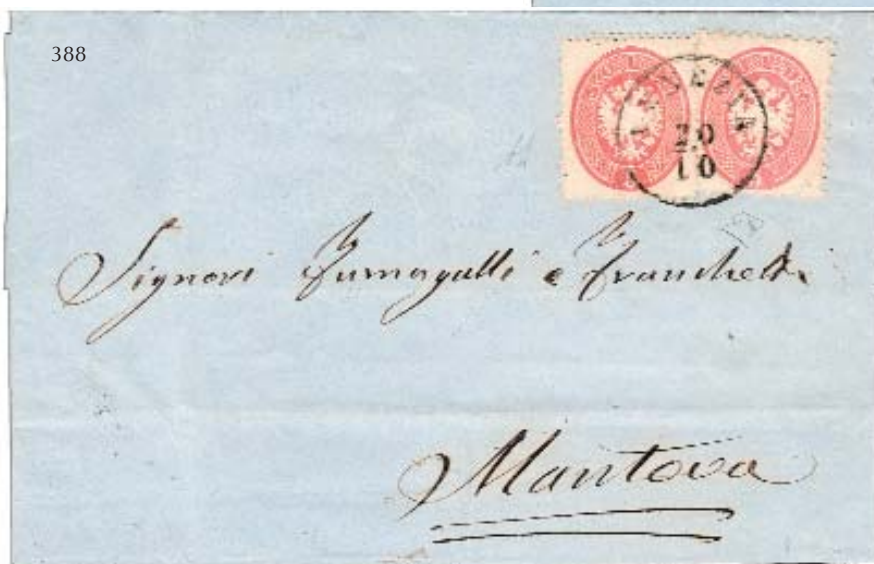 388
VENEZIA
20
10
Signori Fumagalli e Franchetti
Mantova